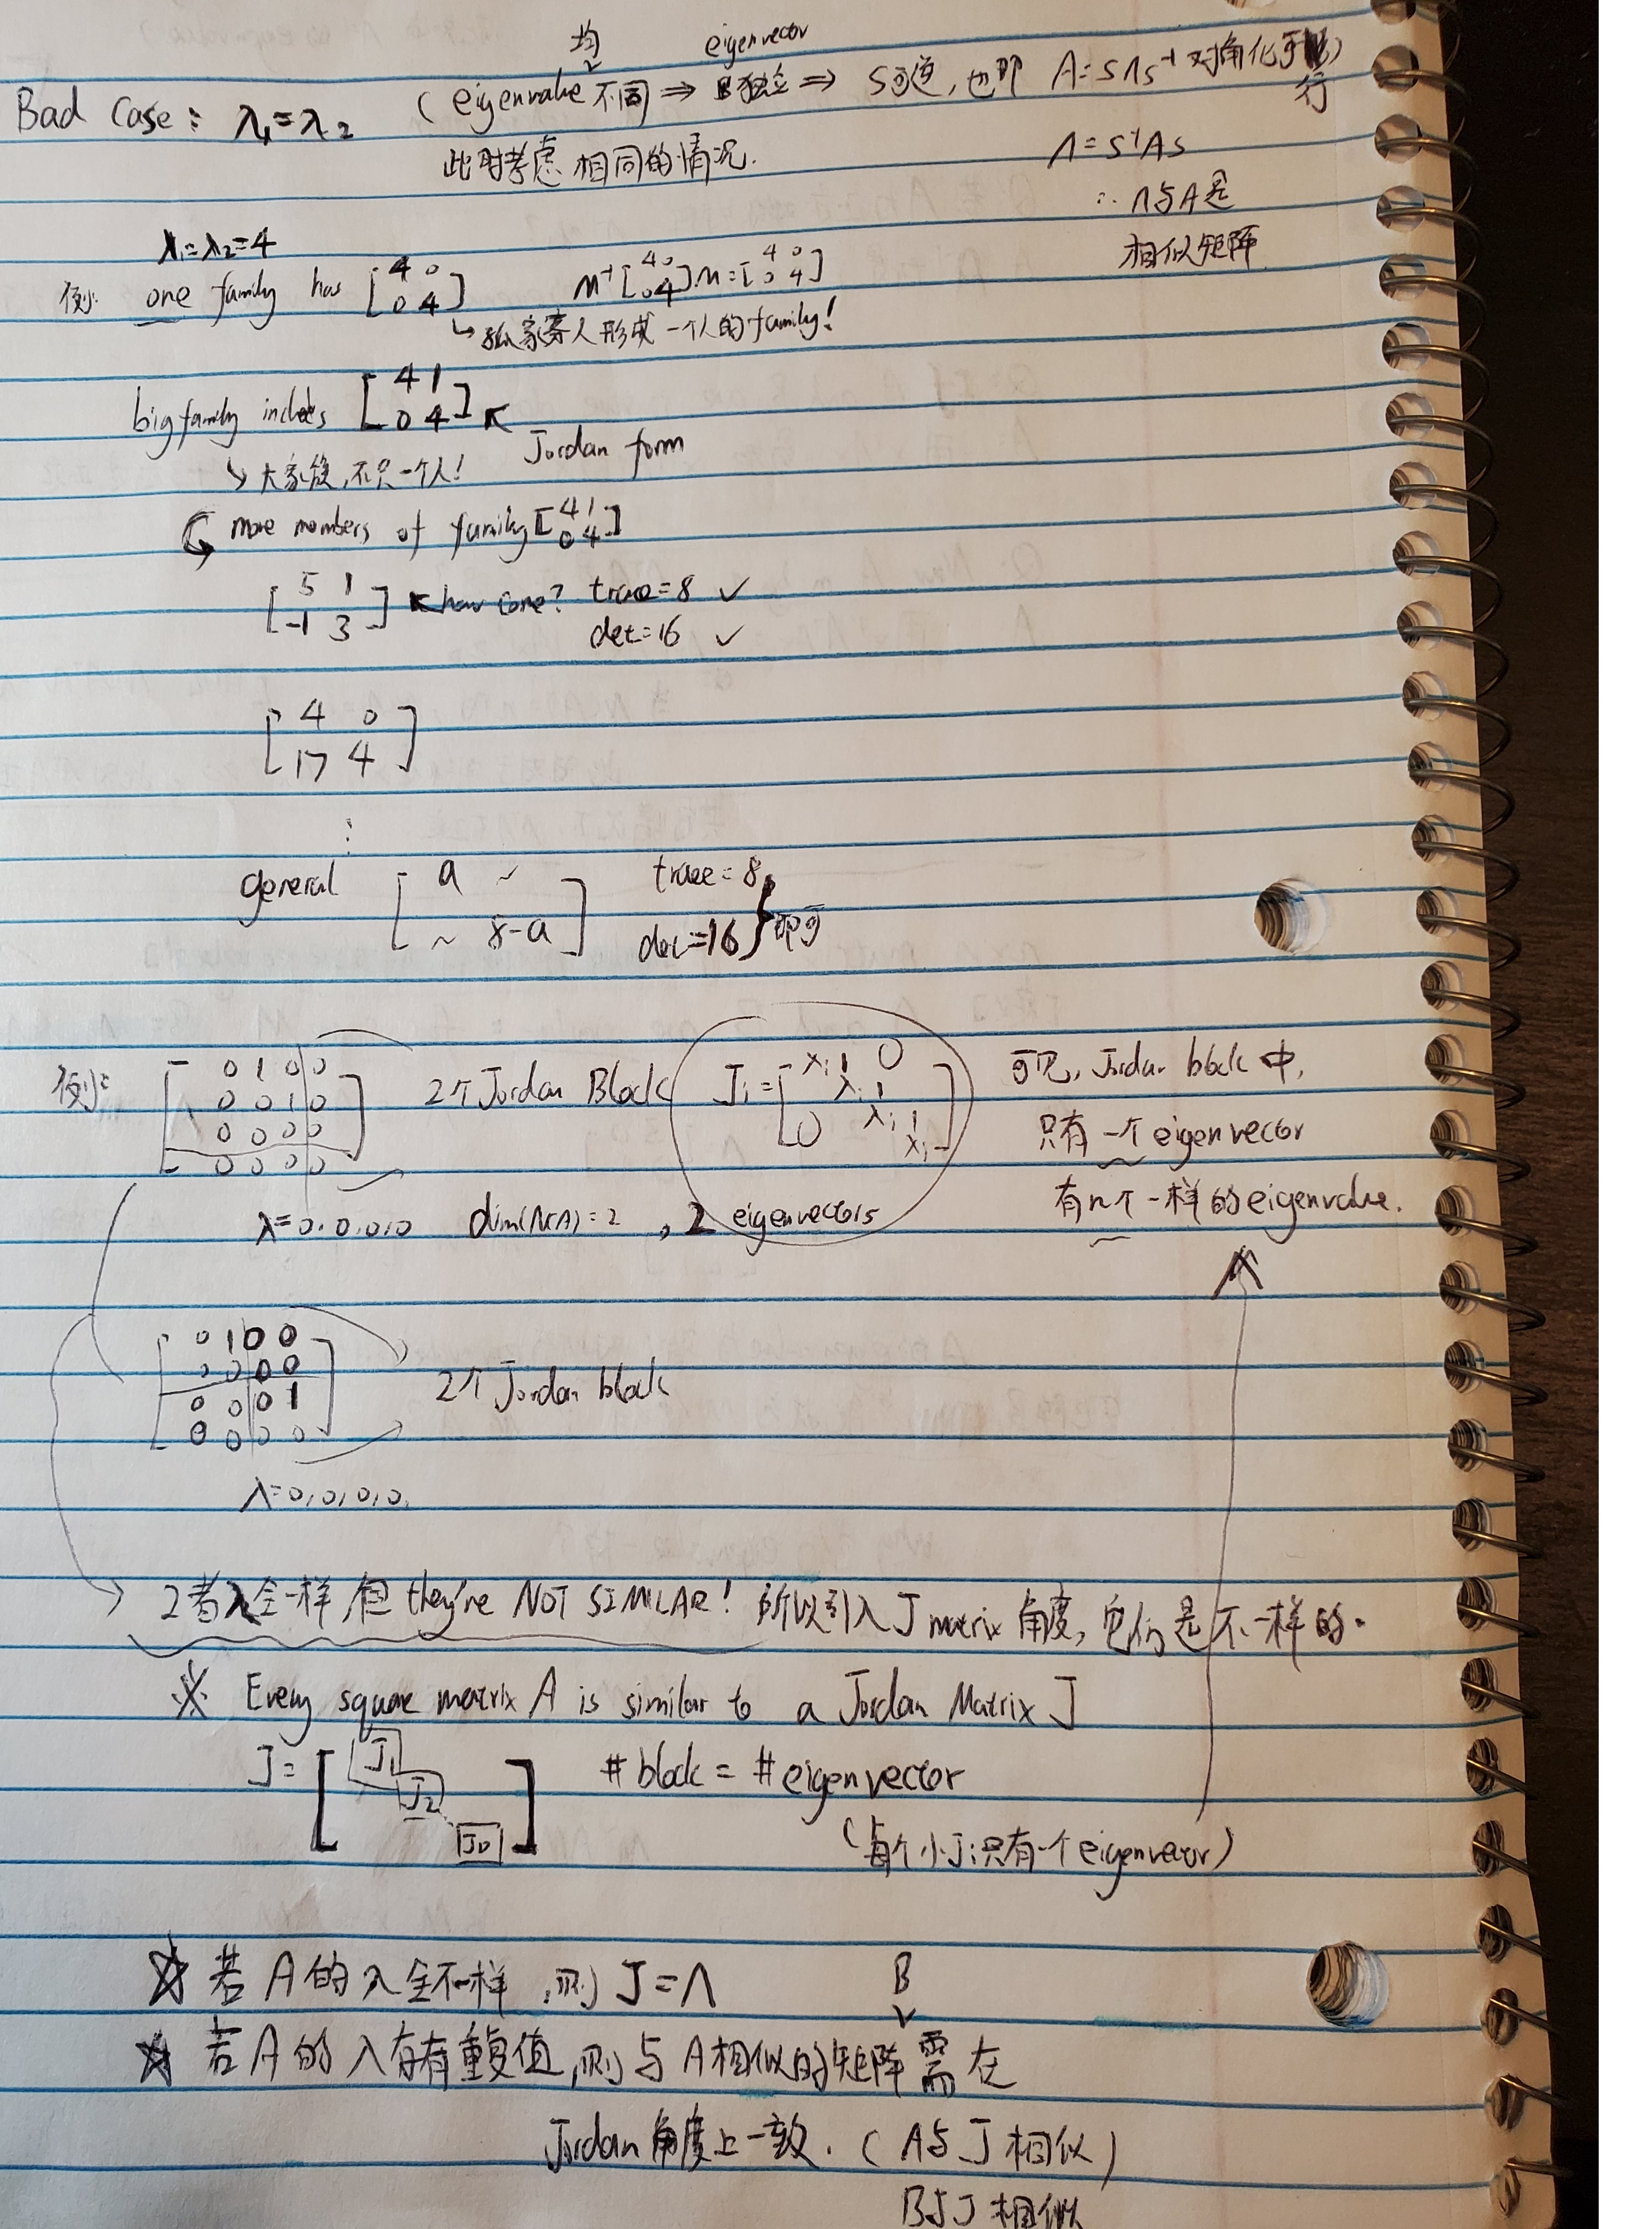 Bad Case: λ₁=λ₂ (eigenvalue 均不同 ⇒ eigenvector 独立 ⇒ S可逆, 也即 A=SΛS⁻¹ 对角化可行)
此时考虑相同的情况.
Λ=S⁻¹AS
∴ Λ与A是
相似矩阵
λ₁=λ₂=4
例: one family has [4 0; 0 4] M⁻¹[4 0; 0 4]M=[4 0; 0 4]
↳ 孤家寡人形成一个人的family!
big family includes [4 1; 0 4] ↖ Jordan form
↳ 大家族,不只一个人!
more members of family [4 1; 0 4]
[5 1; -1 3] ↖ how come? trace=8 ✓
det=16 ✓
[4 0; 17 4]
⋮
general [a ~; ~ 8-a] trace=8
det=16 } 即可
例: [0 1 0 0; 0 0 1 0; 0 0 0 0; 0 0 0 0] 2个Jordan Block Jᵢ=[λᵢ 1 0; λᵢ 1; 0 λᵢ 1; λᵢ] 可见, Jordan block 中,
只有一个eigenvector
有n个一样的eigenvalue.
λ=0,0,0,0 dim(N(A))=2 , 2 eigenvectors
[0 1 0 0; 0 0 0 0; 0 0 0 1; 0 0 0 0] 2个Jordan block
λ=0,0,0,0.
→ 2者λ全一样,但 they're NOT SIMILAR! 所以引入J matrix 角度, 它们是不一样的.
※ Every square matrix A is similar to a Jordan Matrix J
J=[J₁ J₂ ⋱ Jd] #block = #eigenvector
(每个小Jᵢ只有一个eigenvector)
☆ 若A的λ全不一样,则J=Λ
☆ 若A的λ存有重复值,则与A相似的矩阵B需在
Jordan角度上一致. (A与J相似)
B与J相似